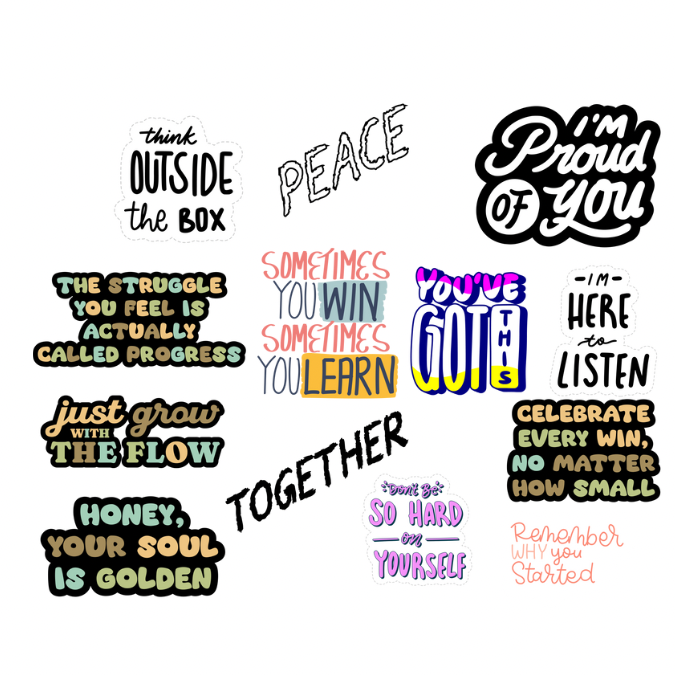 think
OUTSIDE
the BOX
PEACE
I'M
Proud
OF you
THE STRUGGLE
YOU FEEL IS
ACTUALLY
CALLED PROGRESS
SOMETIMES
YOU WIN
SOMETIMES
YOU LEARN
YOU'VE
GOT THIS
-I'M-
HERE
to
LISTEN
just grow
WITH
THE FLOW
TOGETHER
CELEBRATE
EVERY WIN,
NO MATTER
HOW SMALL
HONEY,
YOUR SOUL
IS GOLDEN
Don't Be
SO HARD
on
YOURSELF
Remember
WHY you
Started